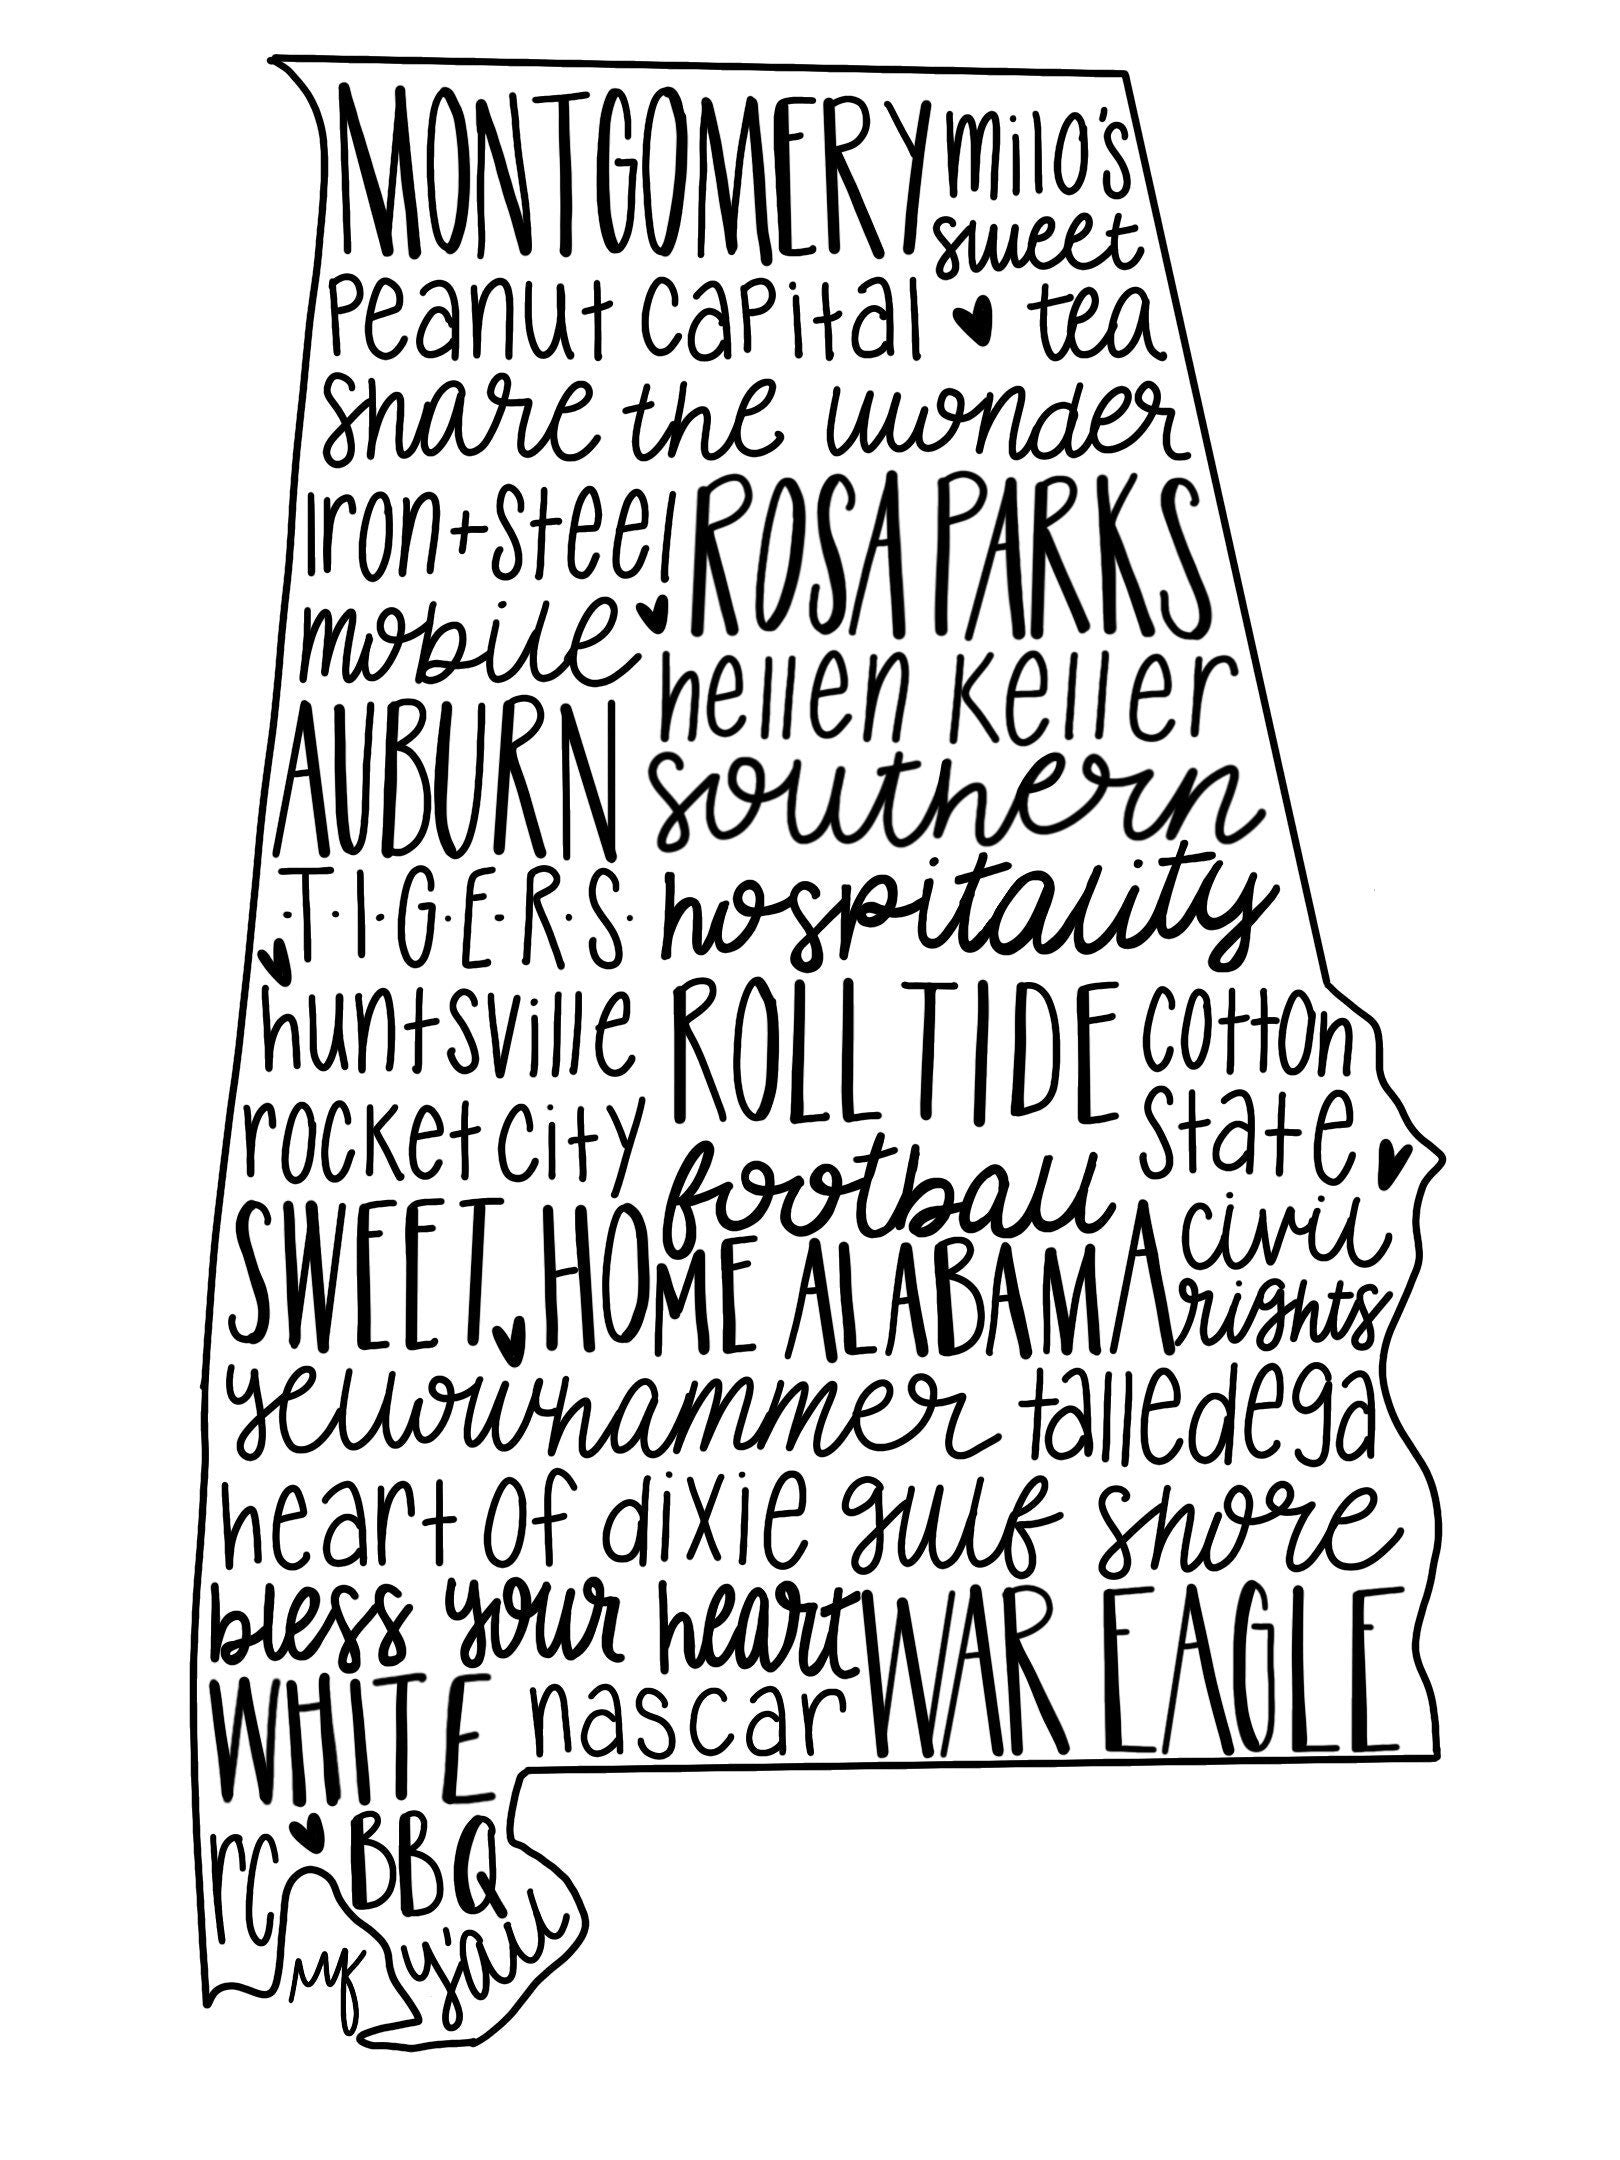 MONTGOMERY milo's
sweet
peanut capital tea
share the wonder
iron+steel ROSA PARKS
mobile
hellen keller
AUBURN southern
·T·I·G·E·R·S· hospitality
huntsville ROLL TIDE cotton
rocketcity state
football
SWEET HOME ALABAMA civil
rights
yellowhammer talledega
heart of dixie gulf shore
bless your heart WAR EAGLE
WHITE nascar
rc BBQ
y'all